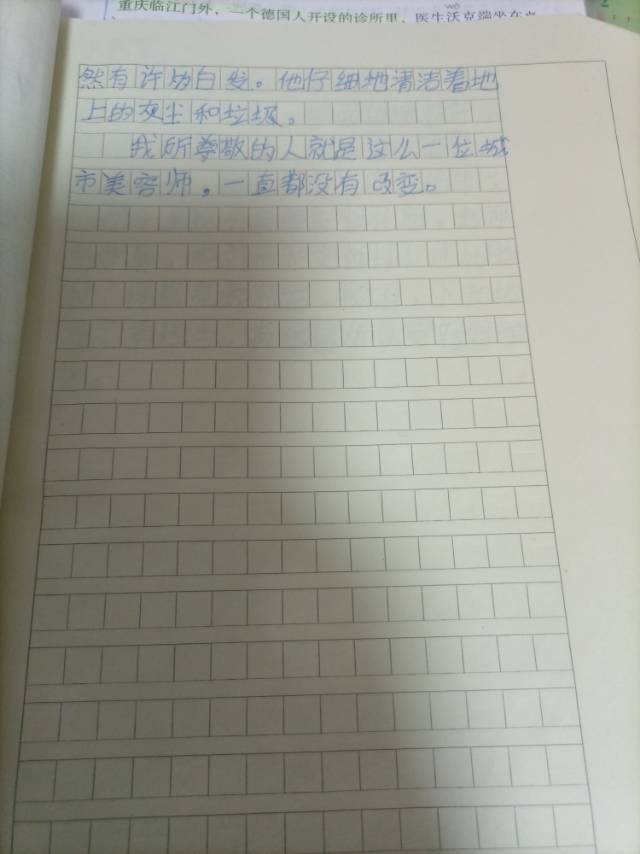 重庆临江门外，一个德国人开设的诊所里，医生沃克端坐在桌
然有许多白发。他仔细地清洁着地
上的灰尘和垃圾。
我所尊敬的人就是这么一位城
市美容师。一直都没有改变。